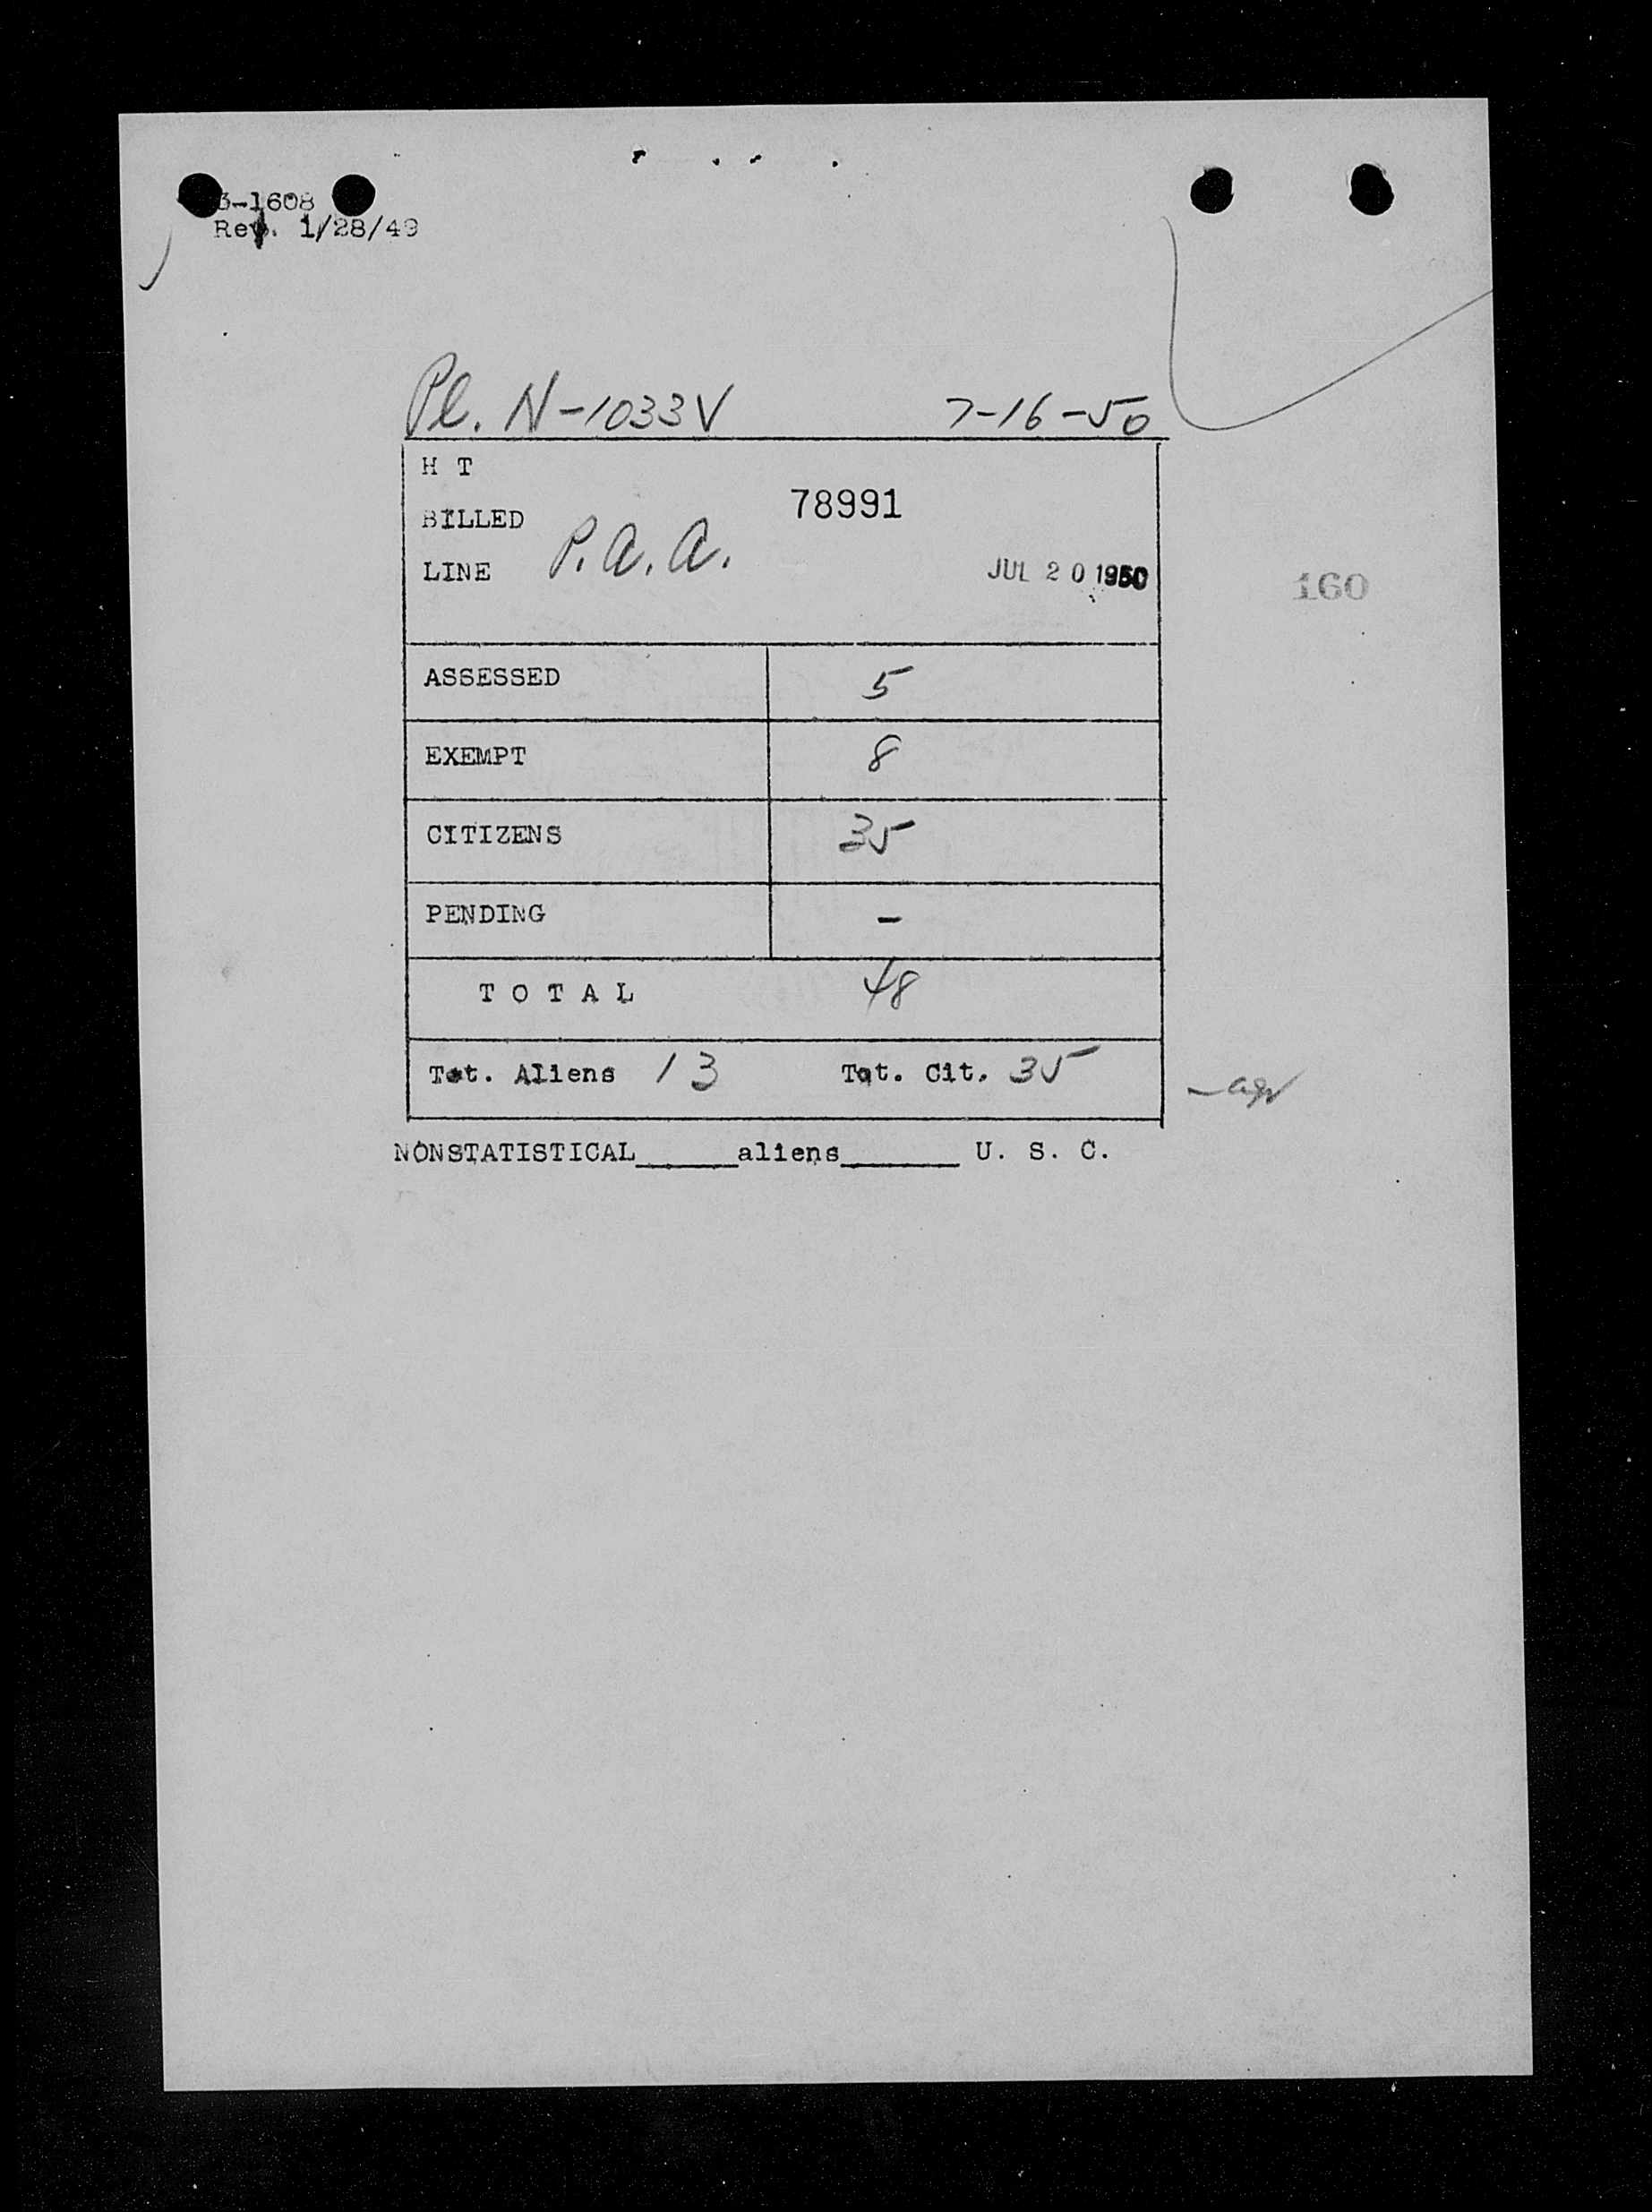 3-1608
Rev. 1/28/49
Pl. N-1033V 7-16-50
H T
78991
BILLED
P.A.A.
LINE
JUL 20 1950
160
ASSESSED 5
EXEMPT 8
CITIZENS 35
PENDING -
TOTAL 48
Tot. Aliens 13 Tot. Cit. 35
NONSTATISTICAL_____aliens______ U. S. C.